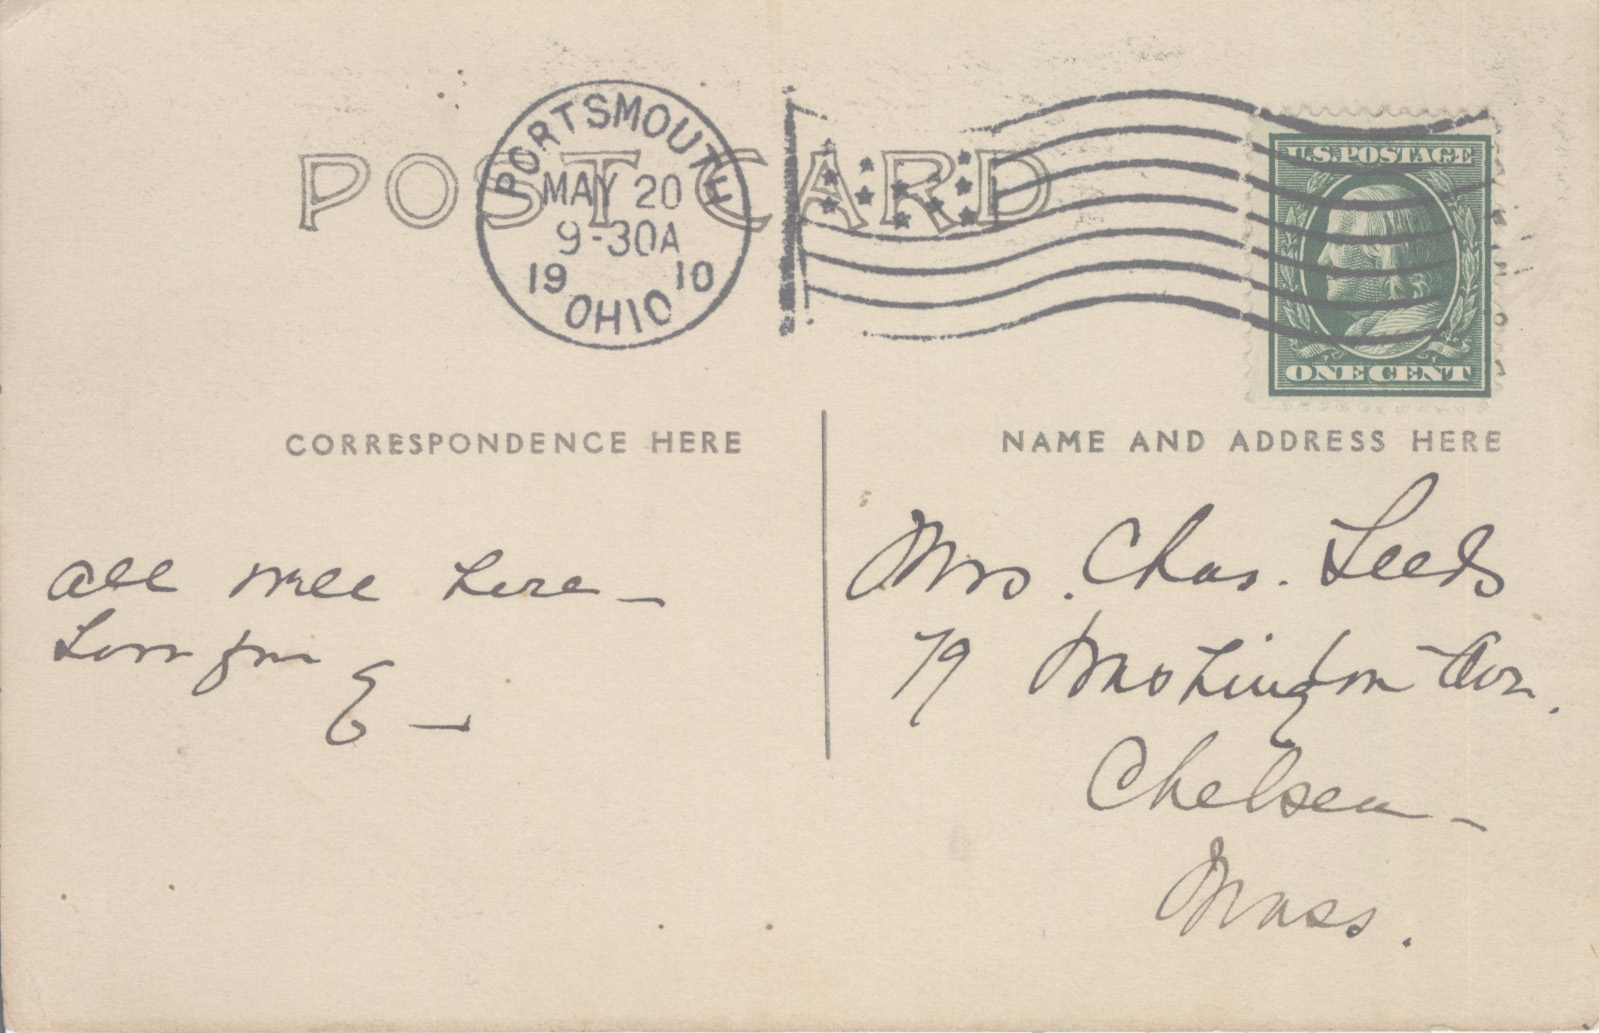 POST CARD
PORTSMOUTH
MAY 20
9-30A
19 10
OHIO
U.S.POSTAGE
ONE CENT
CORRESPONDENCE HERE
NAME AND ADDRESS HERE
all well here –
Love from
E –
Mrs. Chas. Leeds
79 Washington Ave.
Chelsea –
Mass.